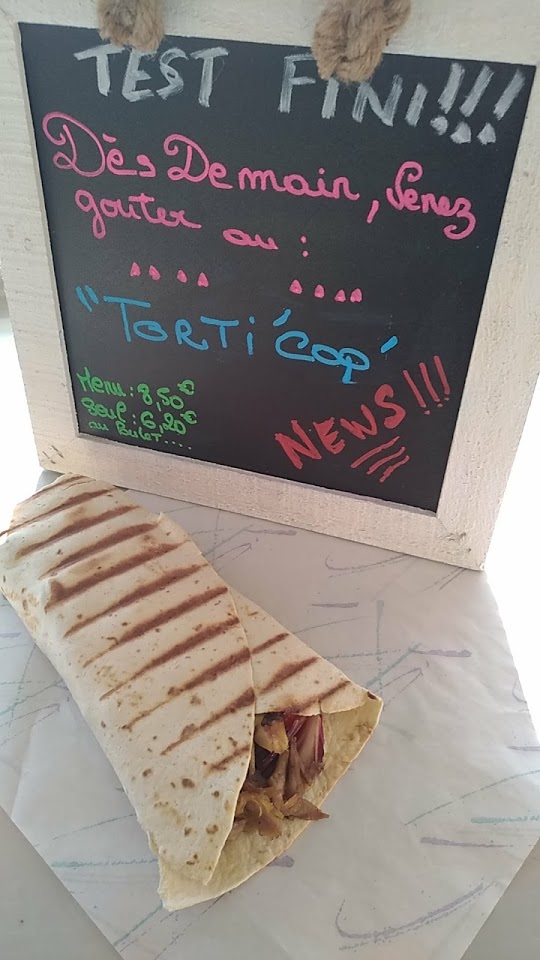 TEST FINI!!!
Dès Demain, Venez
gouter au :
"TORTI'COQ'
Menu : 8,50€
Seul : 6,20€
au Poulet....
NEWS!!!